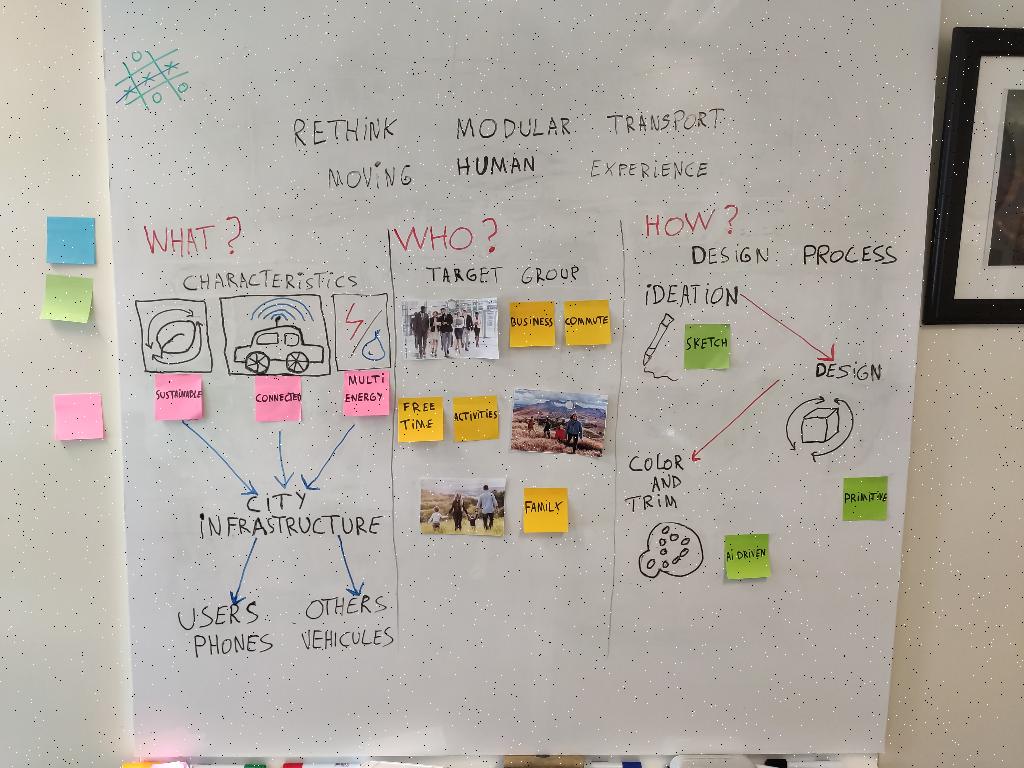 RETHINK MODULAR TRANSPORT
MOVING HUMAN EXPERIENCE
WHAT?
CHARACTERISTICS
SUSTAINABLE
CONNECTED
MULTI
ENERGY
CITY
INFRASTRUCTURE
USERS
PHONES
OTHERS
VEHICULES
WHO?
TARGET GROUP
BUSINESS
COMMUTE
FREE
TIME
ACTIVITIES
FAMILY
HOW?
DESIGN PROCESS
IDEATION
SKETCH
DESIGN
PRIMITIVE
COLOR
AND
TRIM
AI DRIVEN